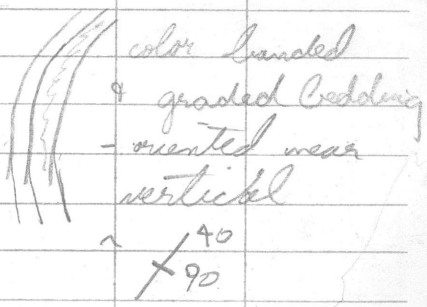 color banded
& graded bedding
- oriented near
vertical
~ 40
90